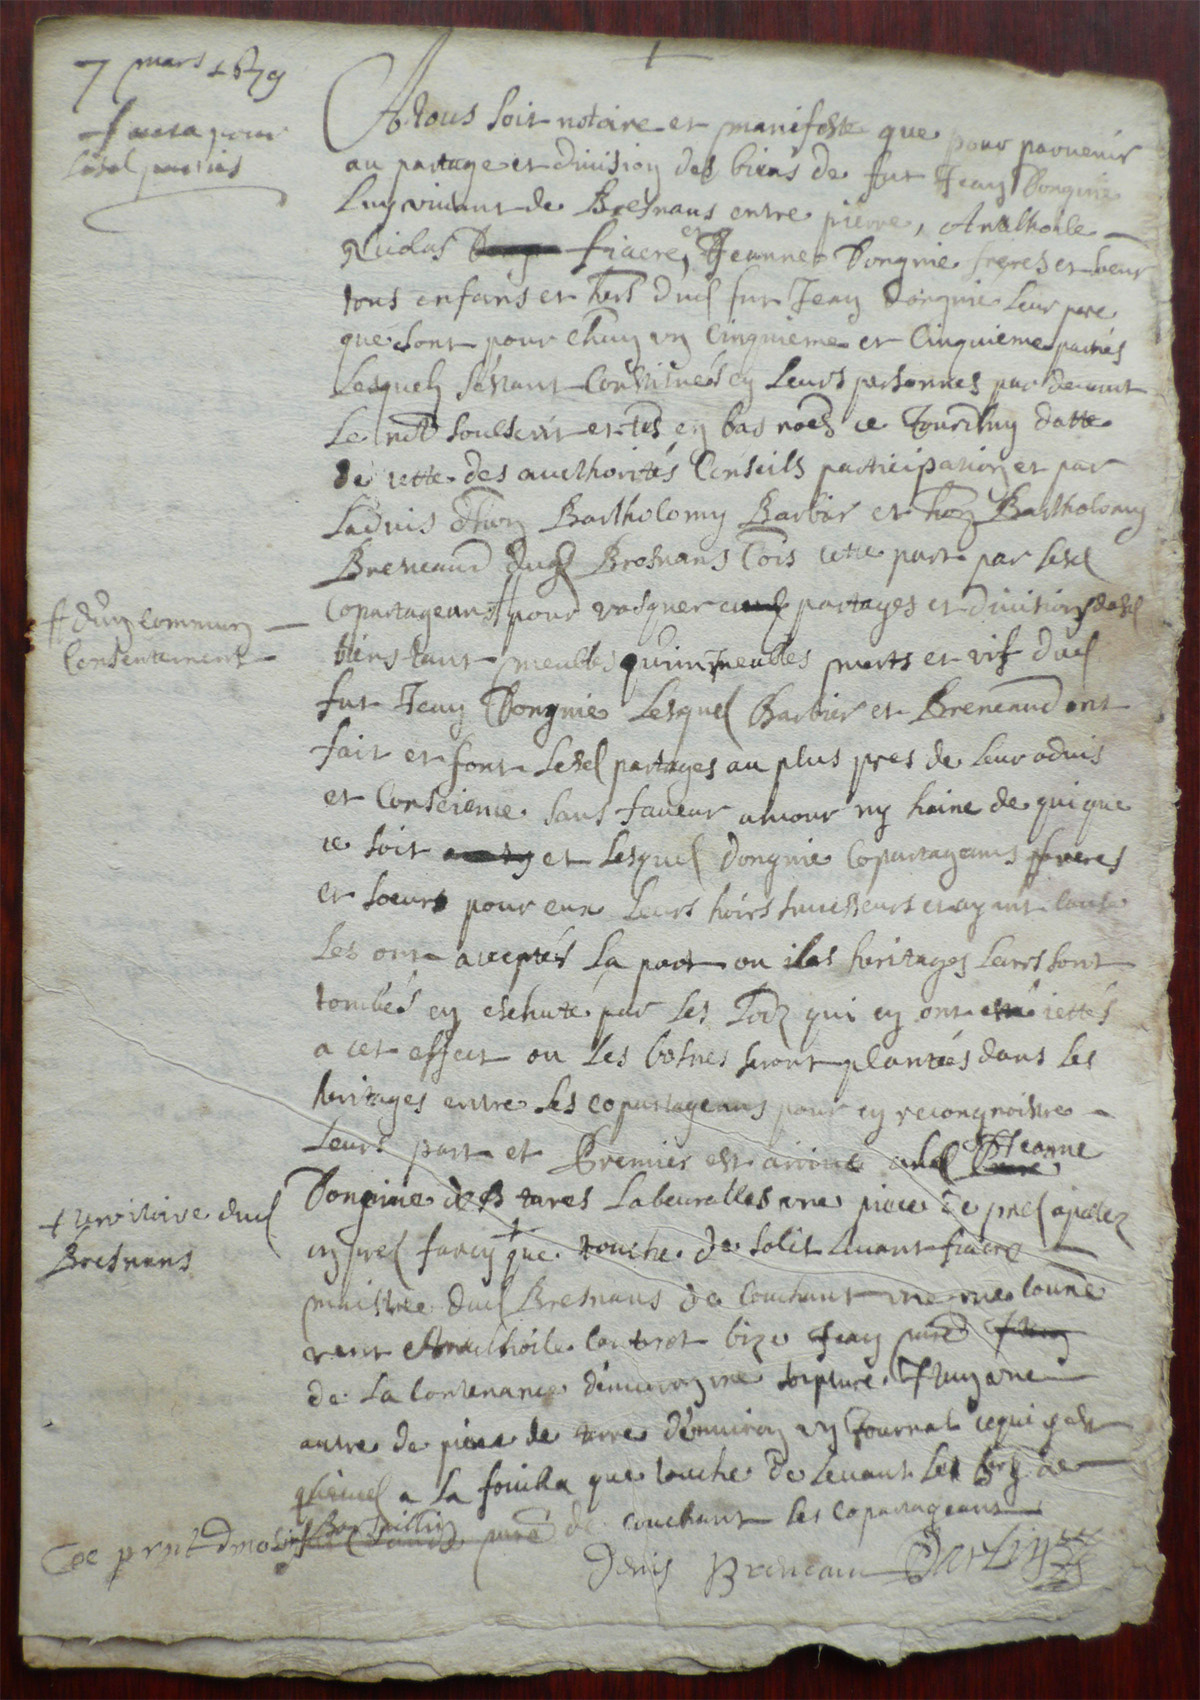 7 mars 1679
faicta pour
lesd parties
A tous soit notoire et manifeste que pour parvenir
au partage et division des biens de fut Jean Dongnie
luy vivant de Bresnans entre pierre, Anathoile
Nicolas fiacre, et Jeanne Dongnie freres et soeur
tous enfans et hers dud fut Jean Dongnie leur pere
que sont pour chun un cinquieme et cinquieme parties
Lesquelz s'estant constitués en leurs personnes par devant
Le nore soubscrit et tes en bas noés ce Jourdhuy datte
de cette des aucthorités conseils participation et par
L'advis d'hon Bartholomy Barbier et hon Bartholomy
Breneaud dud Bresnans cois cette part par lesd
copartageans # pour vasquer partages et division desd
# d'un commun
consentement
biens tant meubles qu'immeubles morts et vifz dud
fut Jean Dongnie Lesquel Barbier et Breneaud ont
fait et font lesd partages au plus pres de leur advis
et conscience sans faveur amour ny haine de qui que
ce soit et lesquel dongnie copartageans freres
et soeurs pour eux leurs hoirs successeurs et ayant cause
les ont acceptés la part ou les heritages leurs sont
tombés en eschute par les qui en ont esté iettés
a cet effect ou les bosnes seront plantées dans les
heritages entre les copartageans pour en recongnoistre
leurs part et Premier est arrivé a lad Jeanne
Dongnie des terres Labeurables une piece de prel apalez
+ territoire dud
Bresnans
en prel farcy + que touche de solit levant fiacre
maistre dud Bresnans de couchant une rue
vent Anathoile bize Jean
de la contenance d'environ une soipture, Item une
autre de piece de terre d'environ un Journal
a la fouilla que touche de levant les de
de couchant les copartageans
Denis Breneau